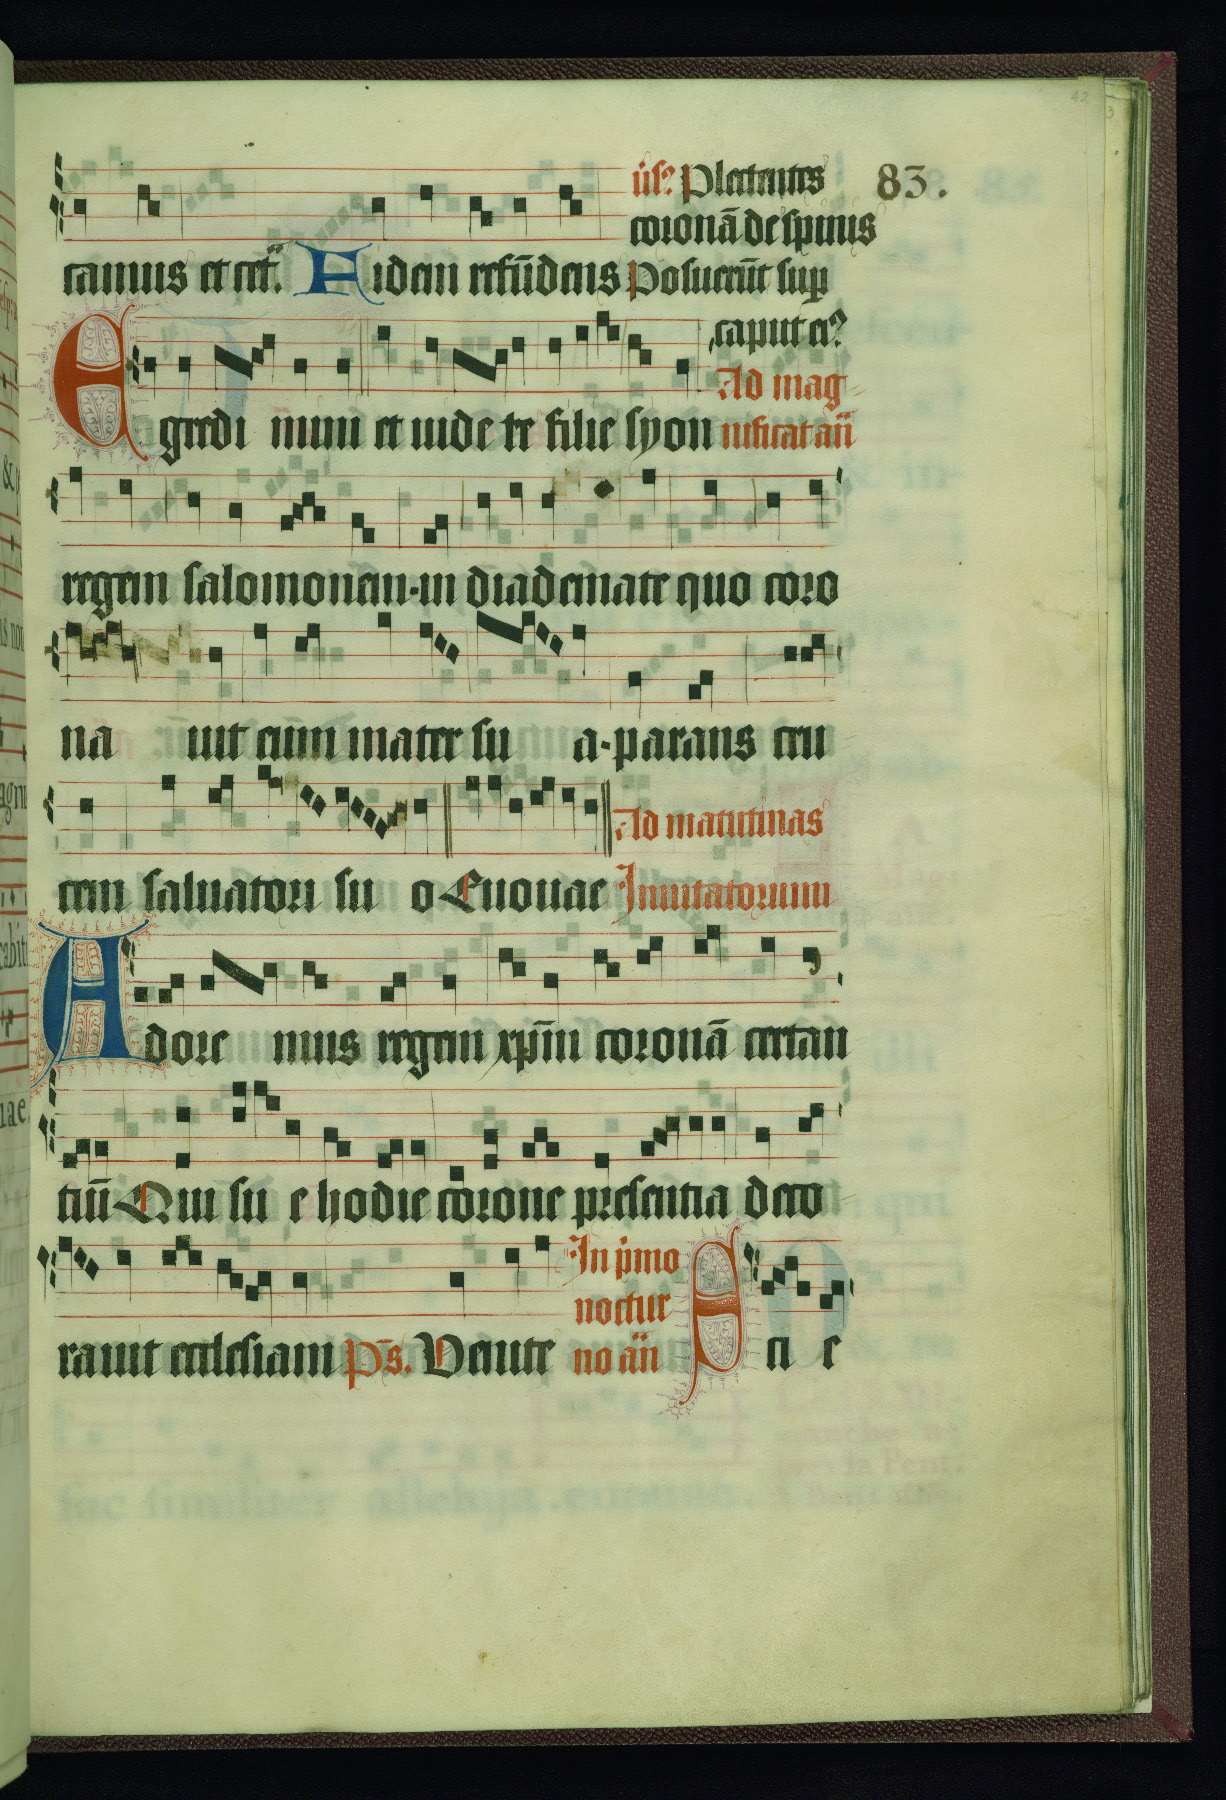 ūs? Plectentes 83.
coronā de spinis
camus et cet̄. Fidem refūdens Posuerūt sup
caput ei?
Ad mag
Egredi mini et uide te filie syon nificat an̄
regem salomonem·in diademate quo coro
na uit eum mater su a·parans cru
Ad matutinas
cem saluatori su o Euouae Inuitatorium
Adore mus regem xp̄m coronā certan
tiū Qui su e hodie corone presentia deco
In p̄mo
noctur
rauit ecclesiam Ps̄. Venite no an̄ F ci e